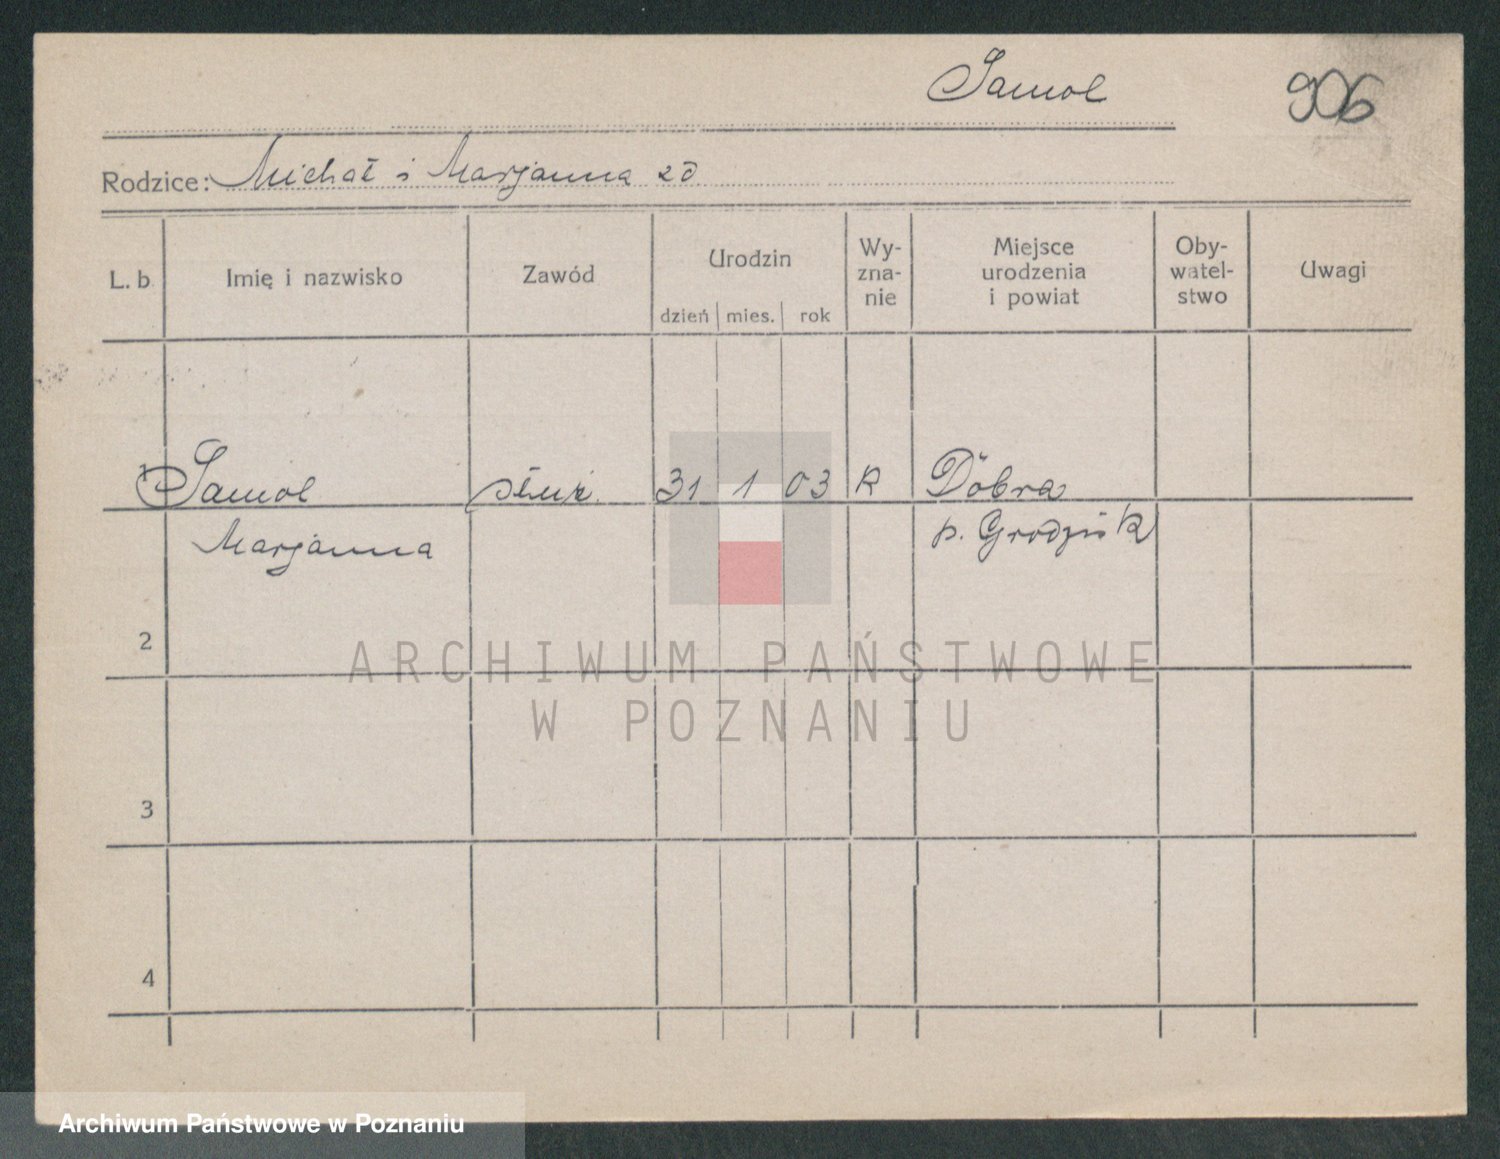 Samol
906
Rodzice: Michał i Marjanna zd.
L. b
Imię i nazwisko
Zawód
Urodzin
dzień mies. rok
Wy-
zna-
nie
Miejsce
urodzenia
i powiat
Oby-
watel-
stwo
Uwagi
1 Samol służ. 31 1 03 R Dobra
Marjanna p. Grodzisk
2
3
4
ARCHIWUM PAŃSTWOWE
W POZNANIU
Archiwum Państwowe w Poznaniu